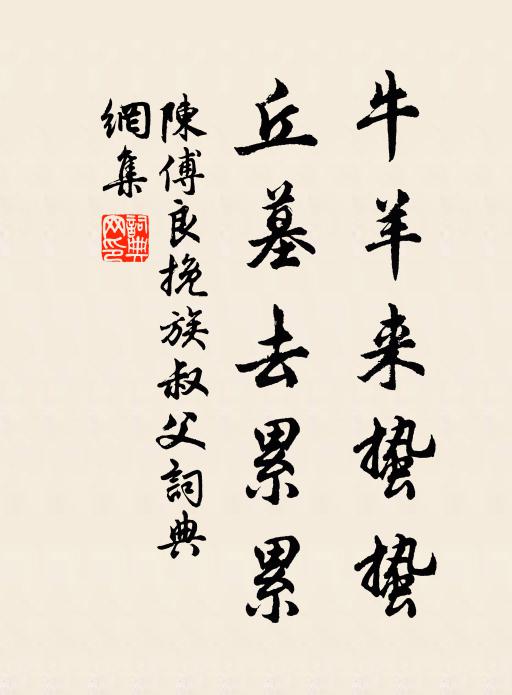 牛羊来蛰蛰
丘墓去累累
陳傅良挽族叔父詞典
網集
詞典
网印